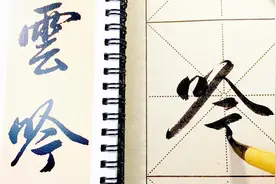 雲
吟
吟